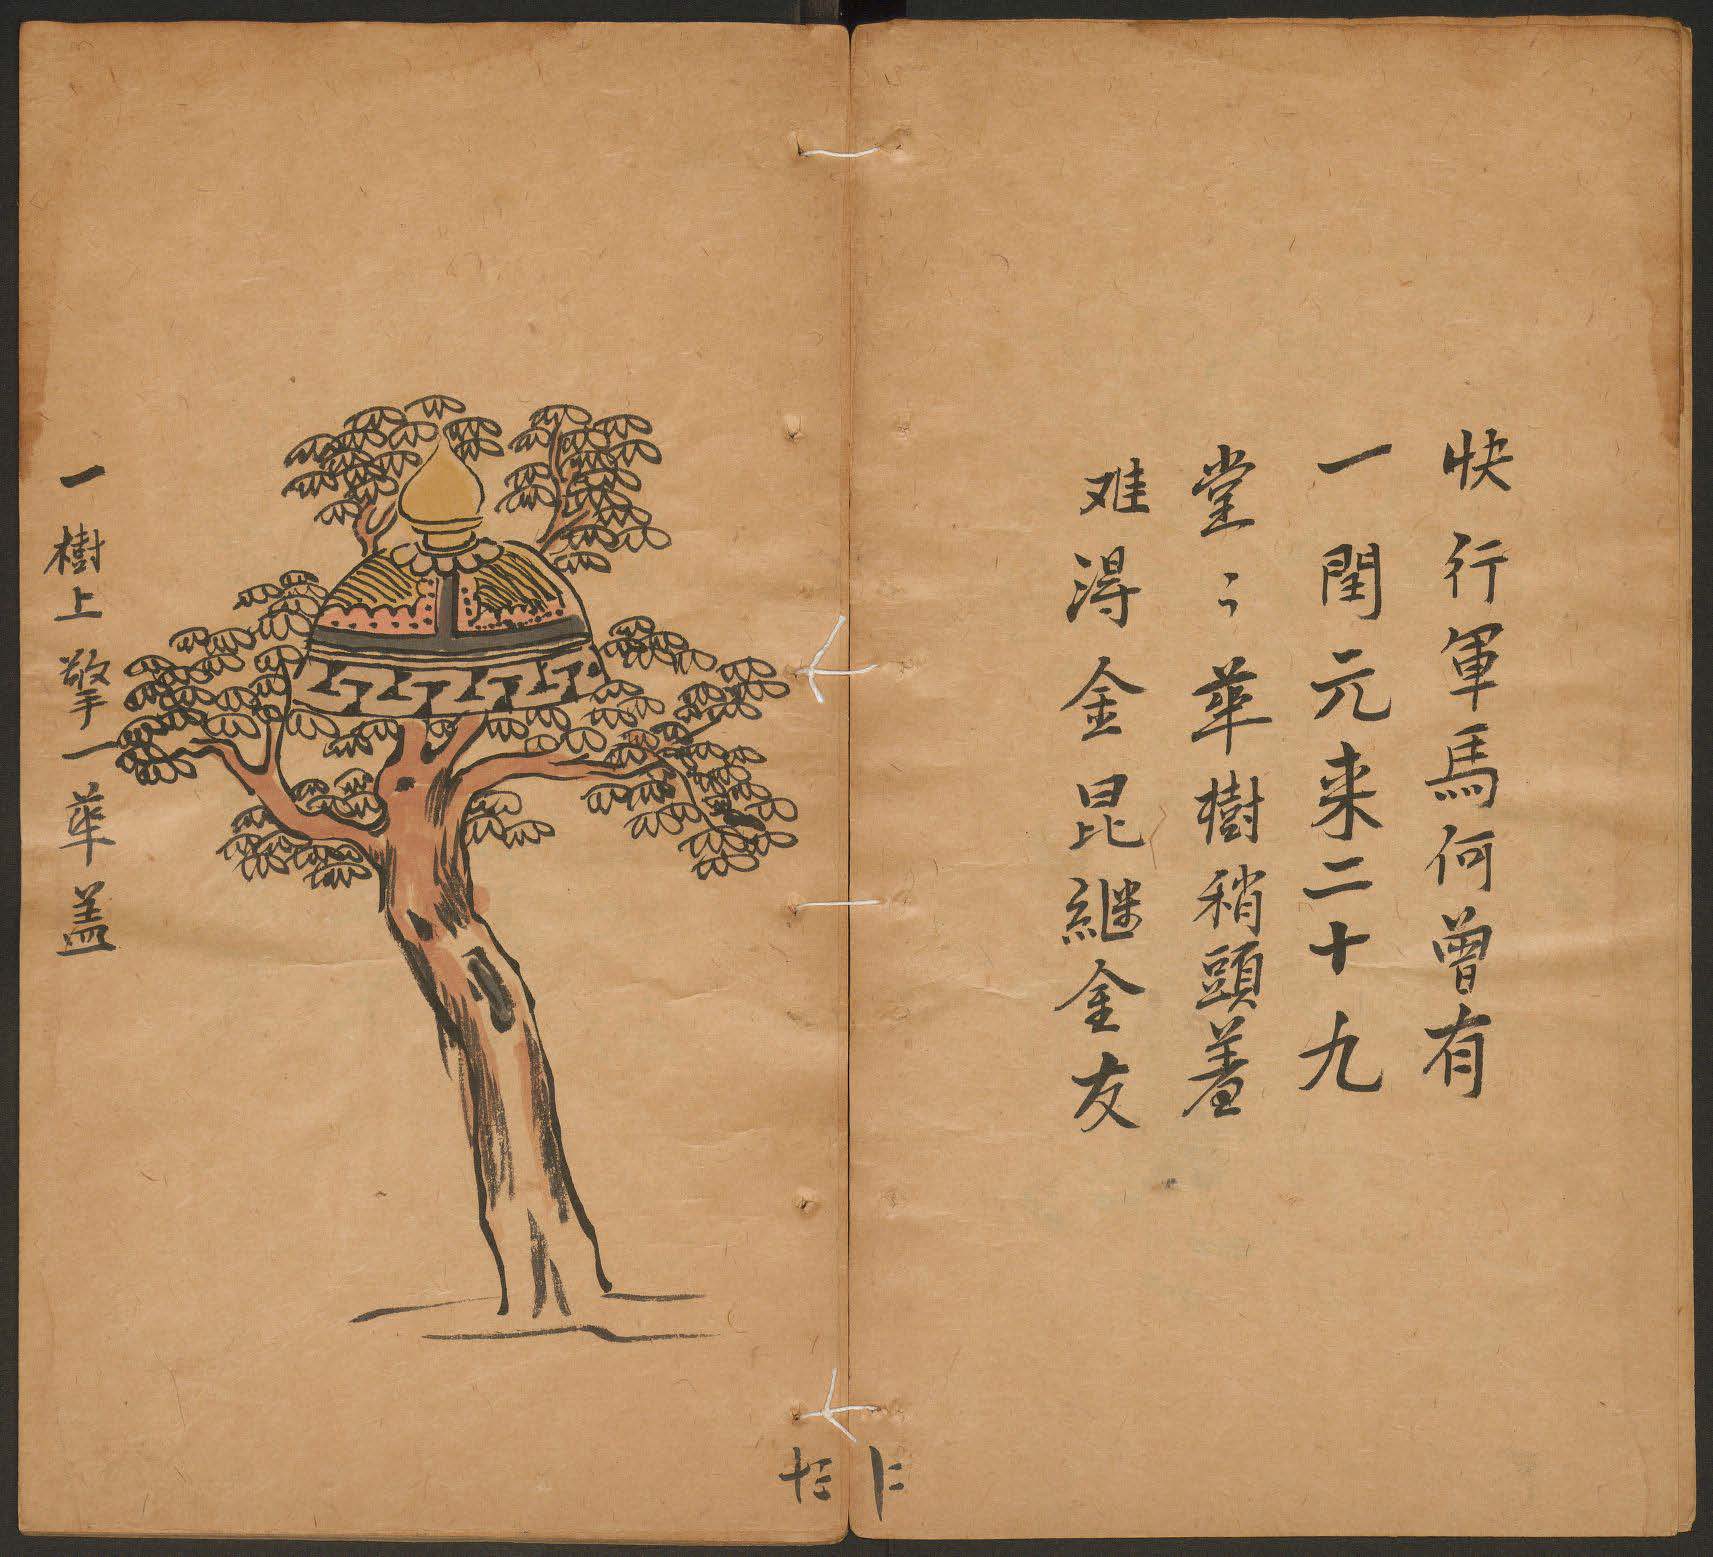 快行軍馬何曾有
一閏元来二十九
堂〻華樹稍頭着
难淂金昆継金友
一樹上擎一華盖
十三